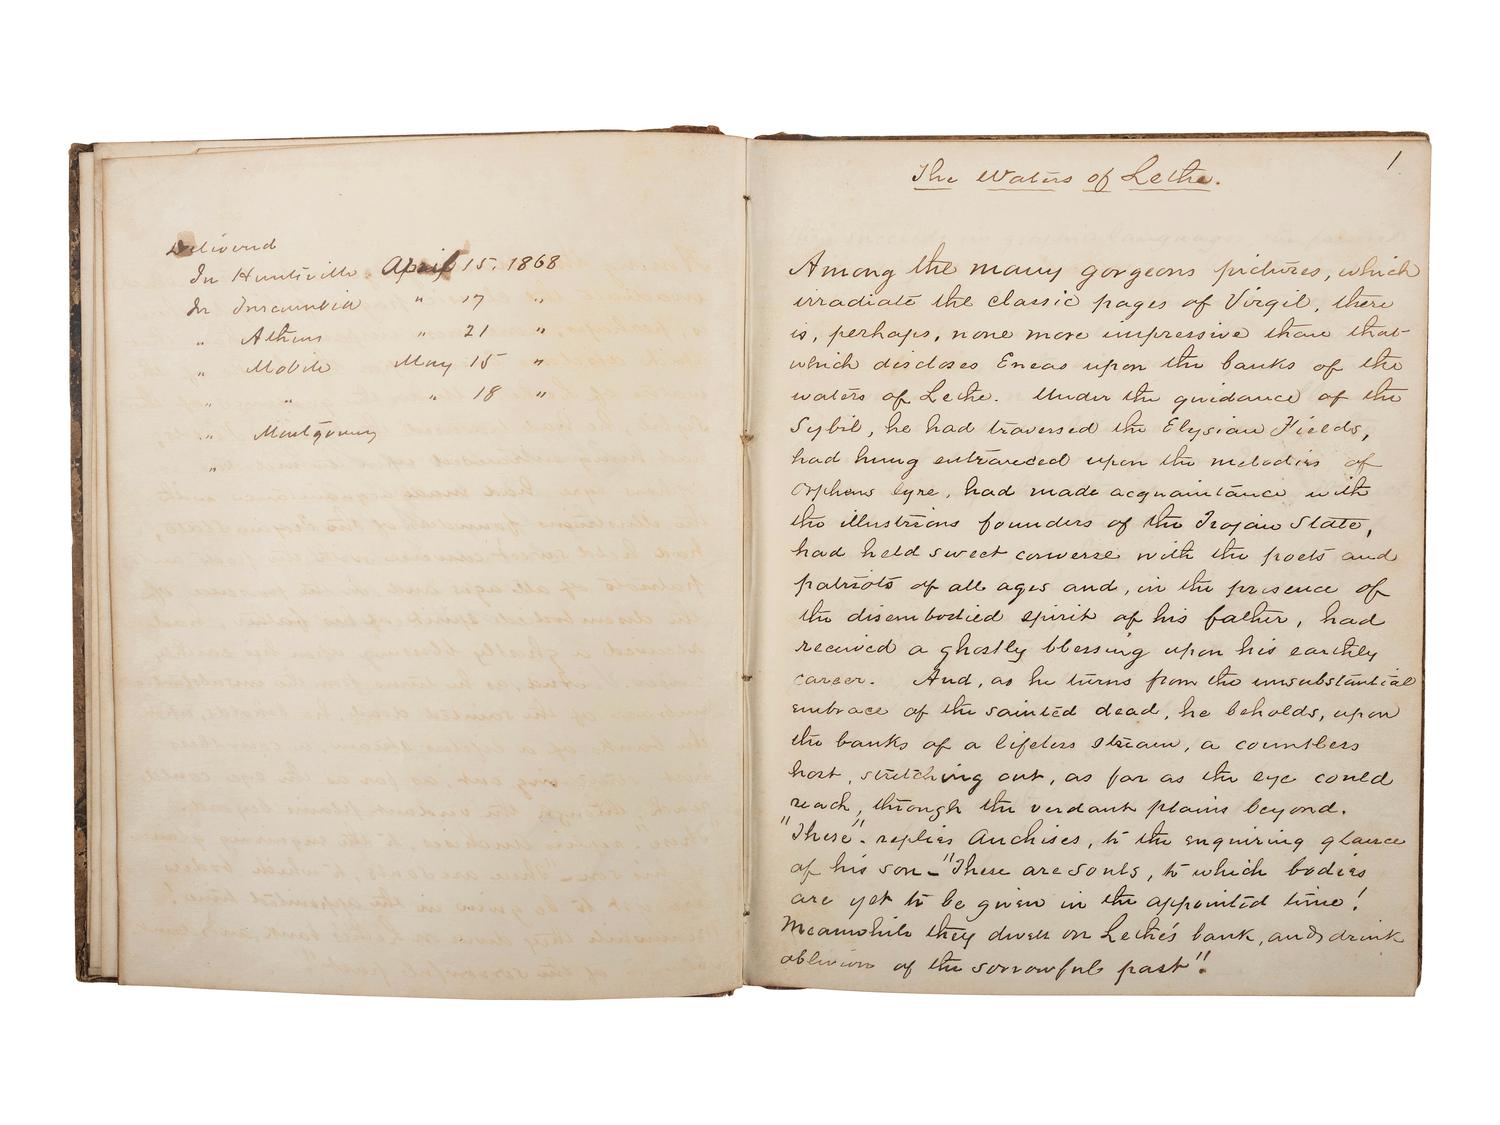 Delivered
In Huntsville April 15, 1868
In Tuscumbia " 17 "
" Athens " 21 "
" Mobile May 15 "
" " " 18 "
" Montgomery
"
1
The Waters of Lethe.
Among the many gorgeous pictures, which
irradiate the classic pages of Virgil, there
is, perhaps, none more impressive than that
which discloses Eneas upon the banks of the
waters of Lethe. Under the guidance of the
Sybil, he had traversed the Elysian Fields,
had hung entranced upon the melodies of
Orpheus lyre, had made acquaintance with
the illustrious founders of the Trojan State,
had held sweet converse with the poets and
patriots of all ages and, in the presence of
the disembodied spirit of his father, had
received a ghostly blessing upon his earthly
career. And, as he turns from the unsubstantial
embrace of the sainted dead, he beholds, upon
the banks of a lifeless stream, a countless
host, stretching out, as far as the eye could
reach, through the verdant plains beyond.
"These" - replies Anchises, to the enquiring glance
of his son - "These are souls, to which bodies
are yet to be given in the appointed time!
Meanwhile they dwell on Lethe's bank, and drink
oblivion of the sorrowful past"!